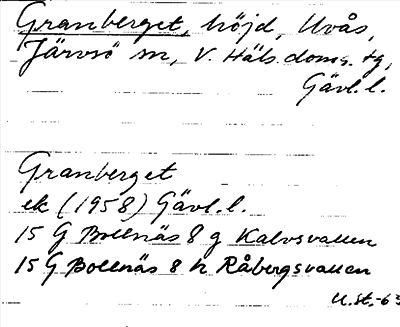 Granberget, höjd, Uvås,
Järvsö sn, V. Häls. doms. tg,
Gävl. l.
Granberget
ek (1958) Gävl. l.
15 G Bollnäs 8 g Kalvsvallen
15 G Bollnäs 8 h Råbergsvallen
U.St.-63